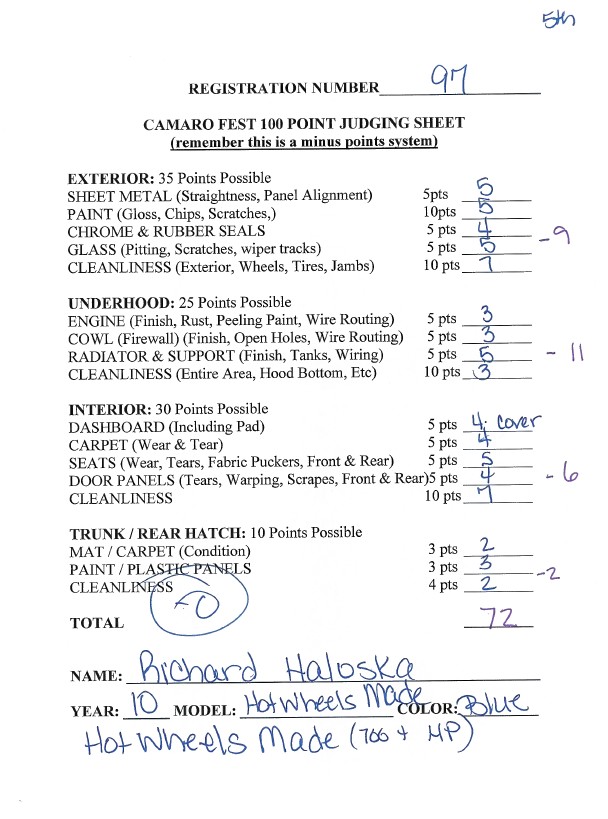 5th
REGISTRATION NUMBER 97
CAMARO FEST 100 POINT JUDGING SHEET
(remember this is a minus points system)
EXTERIOR: 35 Points Possible
SHEET METAL (Straightness, Panel Alignment) 5pts 5
PAINT (Gloss, Chips, Scratches,) 10pts 5
CHROME & RUBBER SEALS 5 pts 4
-9
GLASS (Pitting, Scratches, wiper tracks) 5 pts 5
CLEANLINESS (Exterior, Wheels, Tires, Jambs) 10 pts 7
UNDERHOOD: 25 Points Possible
ENGINE (Finish, Rust, Peeling Paint, Wire Routing) 5 pts 3
COWL (Firewall) (Finish, Open Holes, Wire Routing) 5 pts 3
RADIATOR & SUPPORT (Finish, Tanks, Wiring) 5 pts 5 - 11
CLEANLINESS (Entire Area, Hood Bottom, Etc) 10 pts 3
INTERIOR: 30 Points Possible
DASHBOARD (Including Pad) 5 pts 4; cover
CARPET (Wear & Tear) 5 pts 4
SEATS (Wear, Tears, Fabric Puckers, Front & Rear) 5 pts 5
DOOR PANELS (Tears, Warping, Scrapes, Front & Rear)5 pts 4 - 6
CLEANLINESS 10 pts 7
TRUNK / REAR HATCH: 10 Points Possible
MAT / CARPET (Condition) 3 pts 2
PAINT / PLASTIC PANELS 3 pts 3 -2
CLEANLINESS 4 pts 2
-0
TOTAL 72
NAME: Richard Haloska
YEAR: 10 MODEL: Hot Wheels Made COLOR: Blue
Hot Wheels Made (700 + HP)